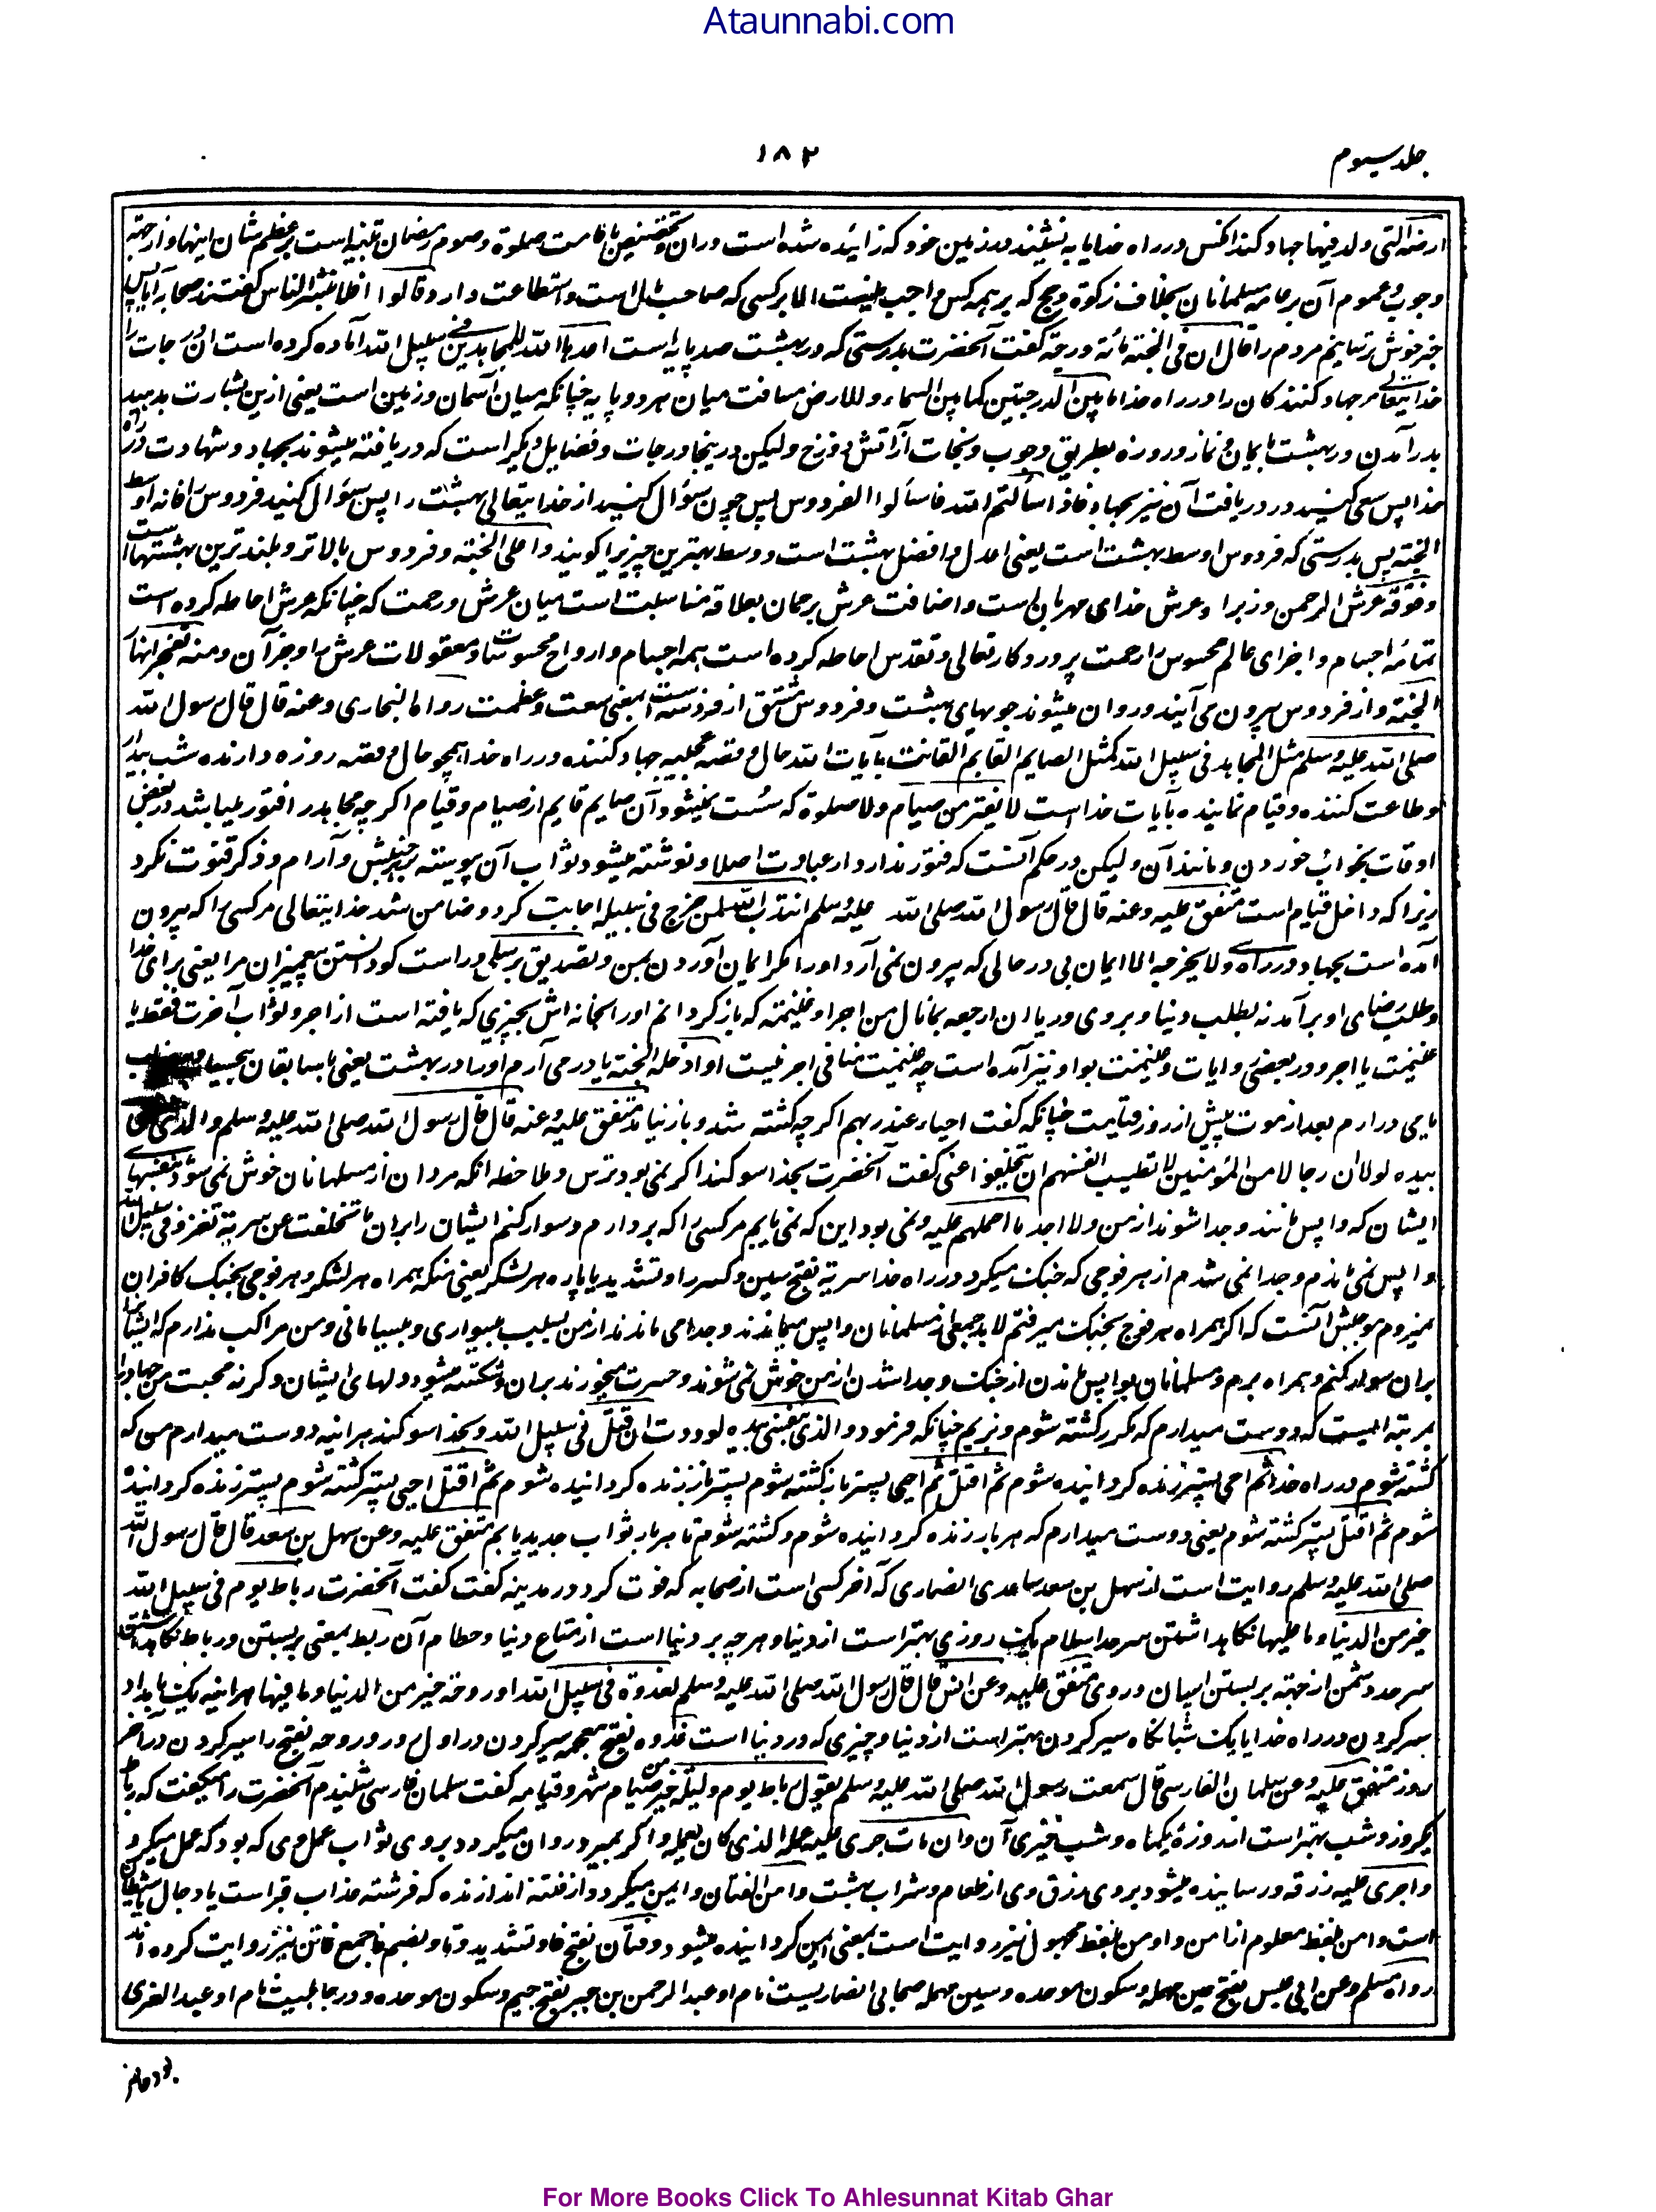 Ataunnabi.com
جلد سیوم
۱۸۲
ارضه التی ولد فیها جهاد کند آنکس در راه خدا یا به نشیند در زمین خود که زائیده شده است دران و تخصیص باقامت صلوة و صوم رمضان تنبیه است بر عظم شان اینها و از جهة
وجوب و عموم آن بر عامه مسلمانان بخلاف زکوة و حج که بر همه کس واجب نیست الا بر کسی که صاحب مال است و استطاعت دارد قالوا افلا نبشر الناس گفتند صحابه آیا پس
خبر خوش نرسانیم مردم را قال ان فی الجنة مائة درجة گفت آنحضرت بدرستی که در بهشت صد پایه است اعدها الله للمجاهدین فی سبیل الله آماده کرده است آن درجات را
خدایتعالی مر جهاد کنندگان را در راه خدا ما بین الدرجتین کما بین السماء و الارض مسافت میان هر دو پایه چنانکه میان آسمان و زمین است یعنی ازین بشارت بدهید
بدر آمدن در بهشت بایمان و نماز و روزه بطریق وجوب و نجات از آتش دوزخ و لیکن درینجا درجات و فضایل دیگر است که دریافته میشوند بجهاد و شهادت در راه
خدا پس سعی کنید در دریافت آن نیز بجهاد فاذا سألتم الله فاسألوا الفردوس پس چون سؤال کنید از خدایتعالی بهشت را پس سؤال کنید فردوس را فانه اوسط
الجنة پس بدرستی که فردوس اوسط بهشت است یعنی اعدل و افضل بهشت است و وسط بهترین چیز را گویند و اعلی الجنة و فردوس بالاتر و بلندترین بهشتها است
و فوقه عرش الرحمن و زبر او عرش خدای مهربان است و اضافت عرش برحمان بعلاقه مناسبت است میان عرش و رحمت که چنانکه عرش احاطه کرده است
تمامه اجسام و اجزای عالم محسوس را رحمت پروردگار تعالی و تقدس احاطه کرده است همه اجسام و ارواح محسوسات و معقولات عرش را و جز آن و منه تفجر انهار
الجنة و از فردوس بیرون می آیند و روان میشوند جویهای بهشت و فردوس مشتق از فردسة است بمعنی سعت و عظمت رواه البخاری وعنه قال قال رسول الله
صلی الله علیه وسلم مثل المجاهد فی سبیل الله کمثل الصایم القایم القانت بآیات الله حال و قصه عجیبه جهاد کننده در راه خدا همچو حال و قصه روزه دارنده شب بیدار
و طاعت کننده و قیام نماینده بآیات خدا است لا یفتر من صیام ولا صلوة که سست نمیشود آن صایم قایم از صیام و قیام اگرچه مجاهد را فتور میباشد در بعض
اوقات بخواب خوردن و مانند آن و لیکن در حکم آنست که فتور ندارد از عبادت اصلا و نوشته میشود ثواب آن پیوسته بر جنبش و آرام و ذکر قنوت نکرد
زیرا که داخل قیام است متفق علیه وعنه قال قال رسول الله صلی الله علیه وسلم انتدب الله لمن خرج فی سبیله اجابت کرد و ضامن شد خدایتعالی مر کسی را که بیرون
آمده است بجهاد در راه وی ولا یخرجه الا ایمان بی در حالی که بیرون نمی آرد او را مگر ایمان آوردن بمن و تصدیق برسلی و راست گو دانستن پیغمبران مرا یعنی برای خدا
و طلب رضای او بر آمد نه بطلب دنیا و بروی و ریا ان ارجعه بما نال من اجر او غنیمة که باز گردانم او را بخانه اش بچیزی که یافته است از اجر و ثواب آخرت فقط یا
غنیمت یا اجر و در بعضی روایات و غنیمت بواو نیز آمده است چه غنیمت منافی اجر نیست او ادخله الجنة یا در می آرم او را در بهشت یعنی با سابقان
یا می درارم بعد از موت پیش از روز قیامت چنانکه گفت احیاء عند ربهم اگرچه کشته شد و باز نیامد متفق علیه وعنه قال قال رسول الله صلی الله علیه وسلم والذی نفسی
بیده لولا ان رجالا من المؤمنین لا تطیب انفسهم ان یتخلفوا عنی گفت آنحضرت بخدا سوگند اگر نمی بود ترس و ملاحظه آنکه مردان از مسلمانان خوش نمی شود نفسهای
ایشان که واپس مانند و جدا شوند از من ولا اجد ما احملهم علیه و نمی بود این که نمی یابم مر کسی را که بردارم و سوار کنم ایشان را بران ما تخلفت عن سریة تغزو فی سبیل الله
واپس نمی ماندم و جدا نمی شدم از هر فوجی که جنگ میکرد در راه خدا سریة بفتح سین و کسر را و تشدید یا پاره هر لشکر یعنی منکه همراه هر لشکر و هر فوجی بجنگ کافران
نمیروم موجبش آنست که اگر همراه هر فوج بجنگ میرفتم لابد جمعی از مسلمانان واپس میماندند و جدا می ماندند از من بسبب بی سواری و بی سامانی و من مراکب ندارم که ایشانرا
بران سوار کنم و همراه برم و مسلمانان بواپس ماندن از جنگ و جدا شدن از من خوش نمی شوند و حسرت میخورند بران و شکسته میشود دلهای ایشان وگرنه محبت من جهاد را
بمرتبه ایست که دوست میدارم که مکرر کشته شوم و نزیم چنانکه فرمود والذی نفسی بیده لوددت ان اقتل فی سبیل الله و بخدا سوگند هرآنیه دوست میدارم من که
کشته شوم در راه خدا ثم احیی پستر زنده گردانیده شوم ثم اقتل ثم احیی پستر باز کشته شوم پستر باز زنده گردانیده شوم ثم اقتل احیی پستر کشته شوم پستر زنده گردانیده
شوم ثم اقتل پستر کشته شوم یعنی دوست میدارم که هر بار زنده گردانیده شوم و کشته شوم تا هر بار ثواب جدید یابم متفق علیه وعن سهل بن سعد قال قال رسول الله
صلی الله علیه وسلم روایت است از سهل بن سعد ساعدی انصاری که آخر کسی است از صحابه که فوت کرد در مدینه گفت گفت آنحضرت رباط یوم فی سبیل الله
خیر من الدنیا وما علیها نگاهداشتن سرحد اسلام یک روزی بهتر است از دنیا و هر چه بر دنیا است از متاع دنیا و حطام آن ربط بمعنی بربستن و رباط نگاهداشتن
سرحد دشمن از جهة بربستن اسپان در وی متفق علیه وعن انس قال قال رسول الله صلی الله علیه وسلم لغدوة فی سبیل الله او روحة خیر من الدنیا وما فیها هرآنیه یک بامداد
سیر کردن در راه خدا یا یک شبانگاه سیر کردن بهتر است از دنیا و چیزی که در دنیا است غدوه بفتح معجمه سیر کردن در اول روز و روحه بفتح را سیر کردن در آخر
روز متفق علیه وعن سلمان الفارسی قال سمعت رسول الله صلی الله علیه وسلم یقول رباط یوم ولیلة خیر من صیام شهر وقیامه گفت سلمان فارسی شنیدم آنحضرت را میگفت که رباط
یکروز و شب بهتر است از روزه یکماه و شب خیزی آن وان مات جری علیه عمله الذی کان یعمله و اگر بمیرد روان میگردد بروی ثواب عمل وی که بود که عمل میکرد
و اجری علیه رزقه و رسانیده میشود بروی رزق وی از طعام و شراب بهشت وامن الفتان و ایمن میگردد از فتنه اندازنده که فرشته عذاب قبر است یا دجال یا شیطان
است و امن بلفظ معلوم از امن و اومن بلفظ مجهول نیز روایت است بمعنی ایمن گردانیده میشود و فتان بفتح فا و تشدید تا و بضم فا جمع فاتن نیز روایت کرده اند
رواه مسلم وعن ابی عبس بفتح عین مهمله و سکون موحده و سین مهمله صحابی انصاریست نام او عبد الرحمن بن جبر بفتح جیم و سکون موحده و در جاهلیت نام او عبد العزی
For More Books Click To Ahlesunnat Kitab Ghar